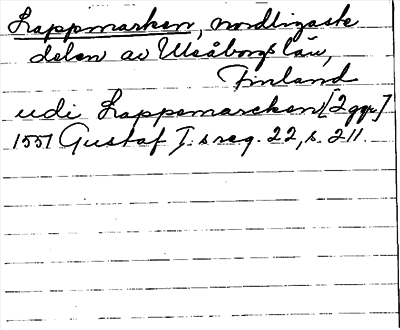 Lappmarken, nordligaste
delen av Uleåborgs län,
Finland
udi Lappemarcken [2 ggr]
1551 Gustaf I:s reg. 22, s. 211.